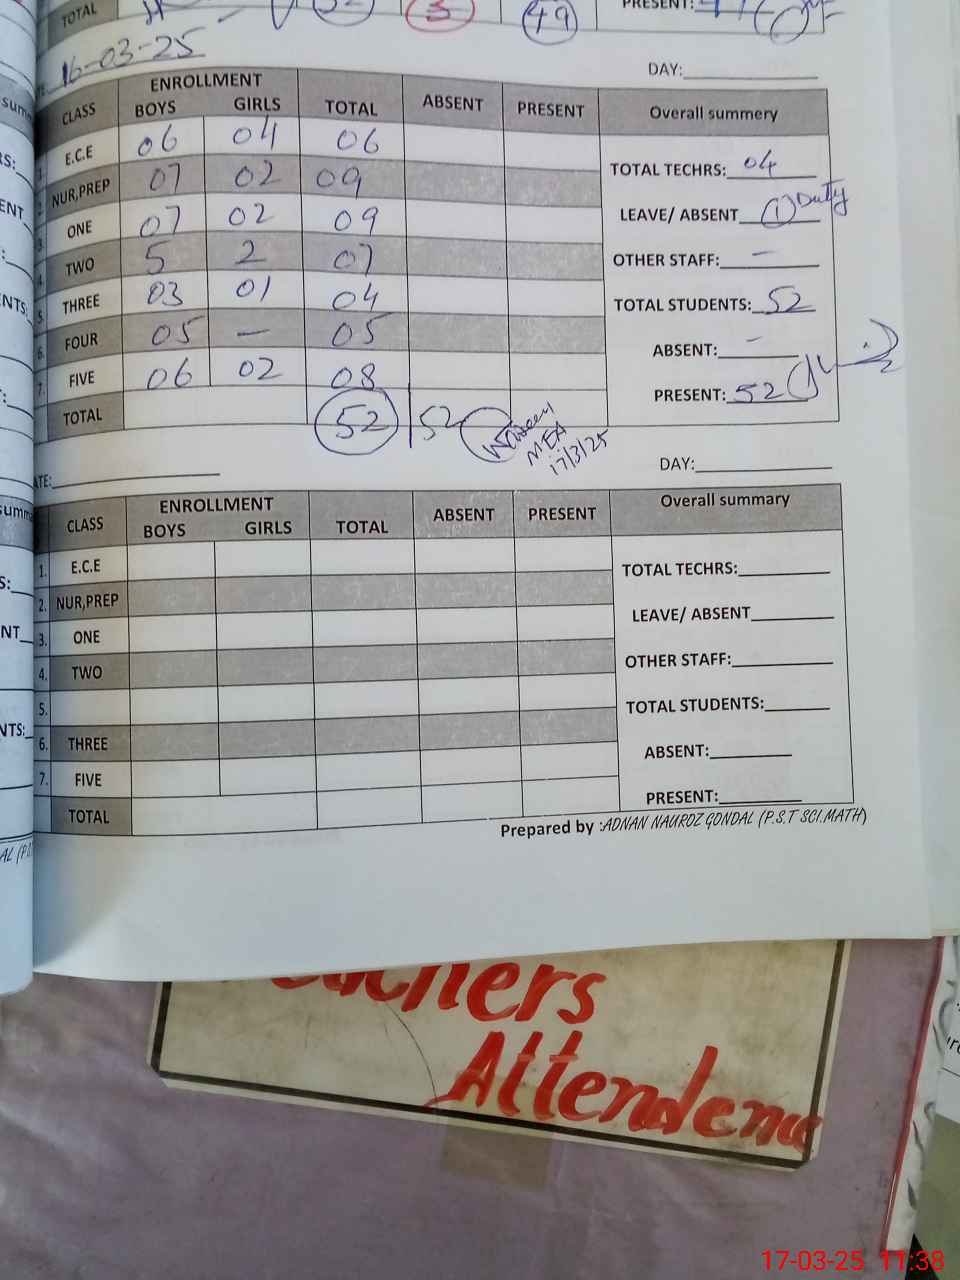 TOTAL 52 3 49 PRESENT:
16-03-25 DAY:
CLASS ENROLLMENT BOYS GIRLS TOTAL ABSENT PRESENT Overall summery
1. E.C.E 06 04 06
2. NUR,PREP 07 02 09 TOTAL TECHRS: 04
3. ONE 07 02 09 LEAVE/ ABSENT 1 Duty
4. TWO 5 2 07 OTHER STAFF: –
5. THREE 03 01 04 TOTAL STUDENTS: 52
6. FOUR 05 – 05 ABSENT: –
7. FIVE 06 02 08 PRESENT: 52
TOTAL 52 52
MEA
17/3/25
ATE: DAY:
CLASS ENROLLMENT BOYS GIRLS TOTAL ABSENT PRESENT Overall summary
1. E.C.E TOTAL TECHRS:
2. NUR,PREP
3. ONE LEAVE/ ABSENT
4. TWO OTHER STAFF:
5. TOTAL STUDENTS:
6. THREE ABSENT:
7. FIVE PRESENT:
TOTAL
Prepared by :ADNAN NAUROZ GONDAL (P.S.T SCI.MATH)
Teachers
Attendence
17-03-25 11:38